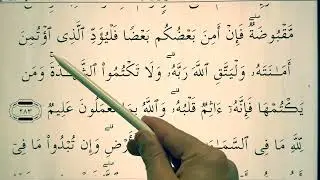 مَّقْبُوضَةٌ ۖ فَإِنْ أَمِنَ بَعْضُكُم بَعْضًا فَلْيُؤَدِّ ٱلَّذِى ٱؤْتُمِنَ
أَمَـٰنَتَهُۥ وَلْيَتَّقِ ٱللَّهَ رَبَّهُۥ ۗ وَلَا تَكْتُمُوا۟ ٱلشَّهَـٰدَةَ ۚ وَمَن
يَكْتُمْهَا فَإِنَّهُۥٓ ءَاثِمٌ قَلْبُهُۥ ۗ وَٱللَّهُ بِمَا تَعْمَلُونَ عَلِيمٌ ٢٨٣
لِّلَّهِ مَا فِى ٱلسَّمَـٰ ٱلْأَرْضِ ۗ وَإِن تُبْدُوا۟ مَا فِىٓ